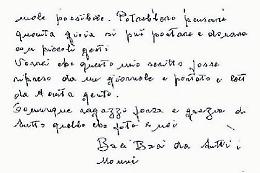 vuole possibile. Potrebbero pensare
quanta gioia si può portare e donare
con piccoli gesti.
Vorrei che questo mio scritto fosse
ripreso da un giornale e portato e letto
da tanta gente.
Comunque ragazzi forza e grazie di
tutto quello che fate x noi
Baci Baci da tutti i
Nonni